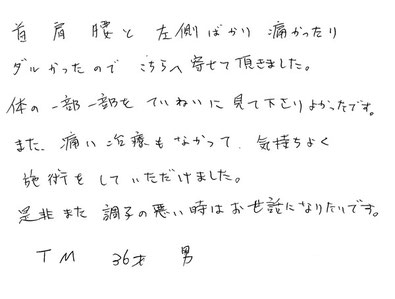 首 肩 腰と 左側ばかり 痛かったり
ダルかったので こちらへ 寄せて頂きました。
体の一部一部を ていねいに見て下さりよかったです。
また、痛い治療もなかって、気持ちよく
施術をしていただけました。
是非また調子の悪い時はお世話になりたいです。
TM 36才 男